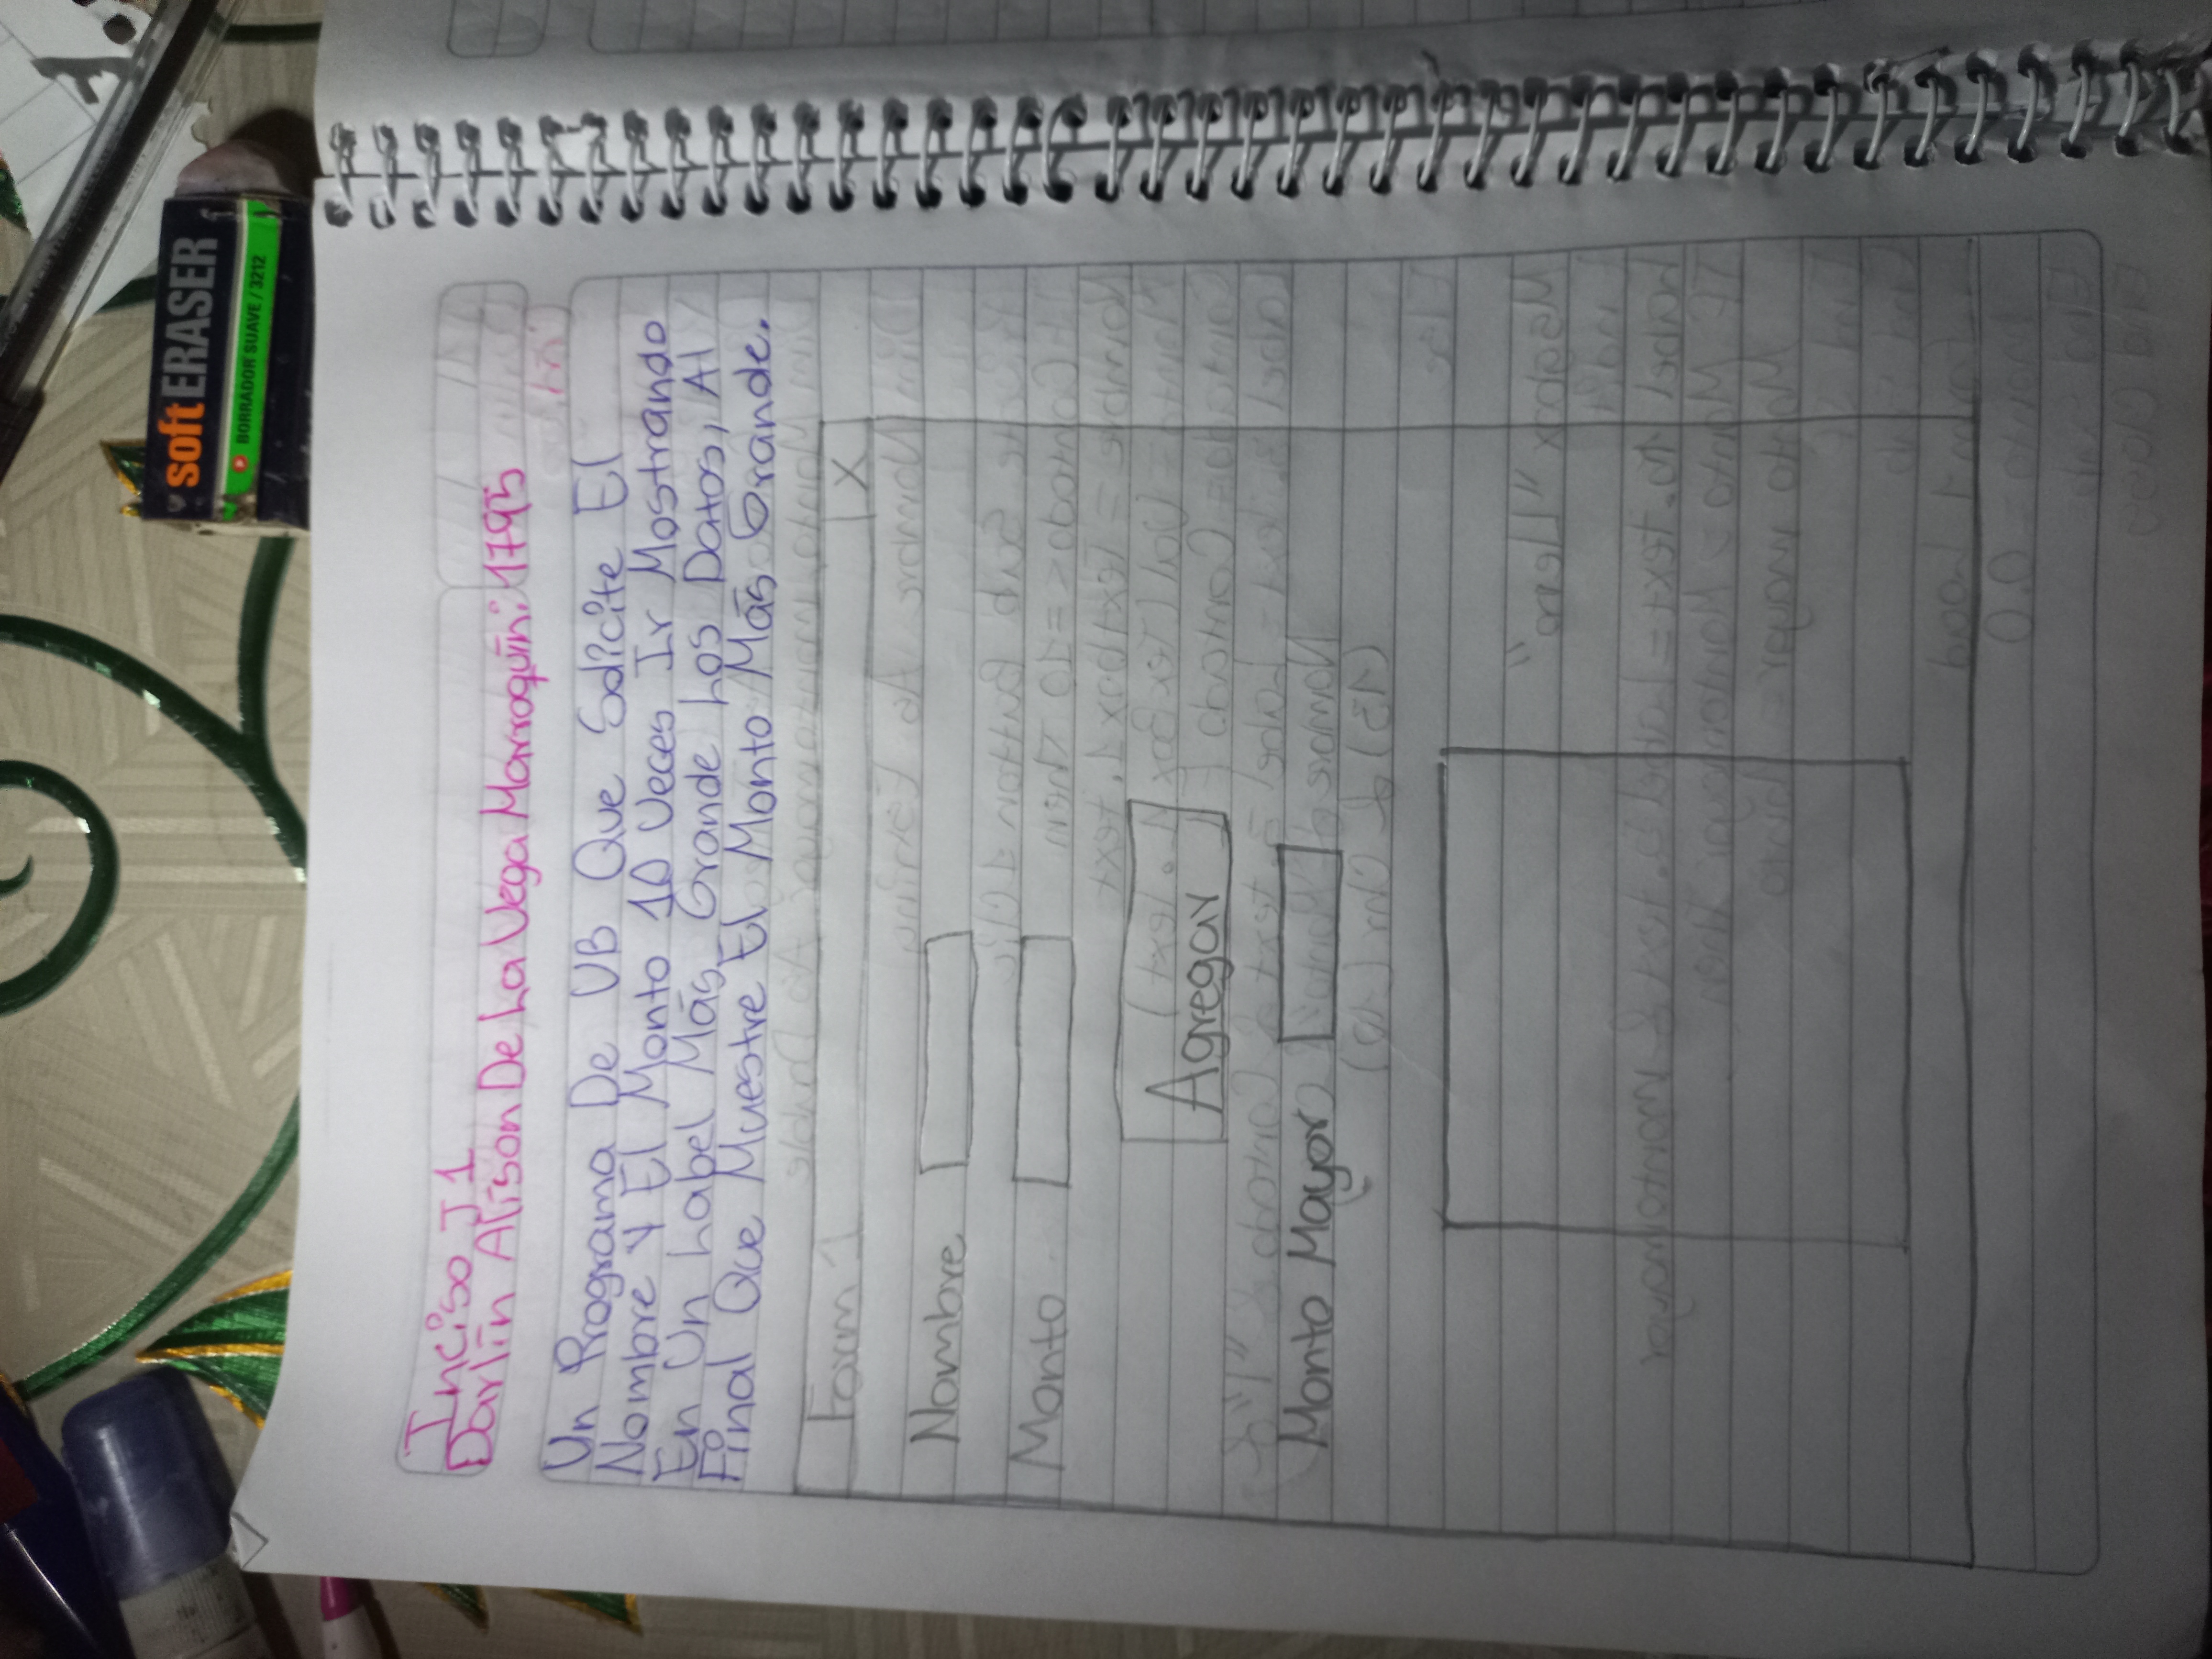 Inciso J1
Darlin Alison De La Vega Marroquín: 1795
Un Programa De VB Que Solicite El
Nombre Y El Monto 10 Veces Ir Mostrando
En Un Label Más Grande Los Datos, Al
Final Que Muestre El Monto Más Grande.
Form 1 X
Nombre
Monto
Agregar
Monto Mayor
soft ERASER
BORRADOR SUAVE / 3212